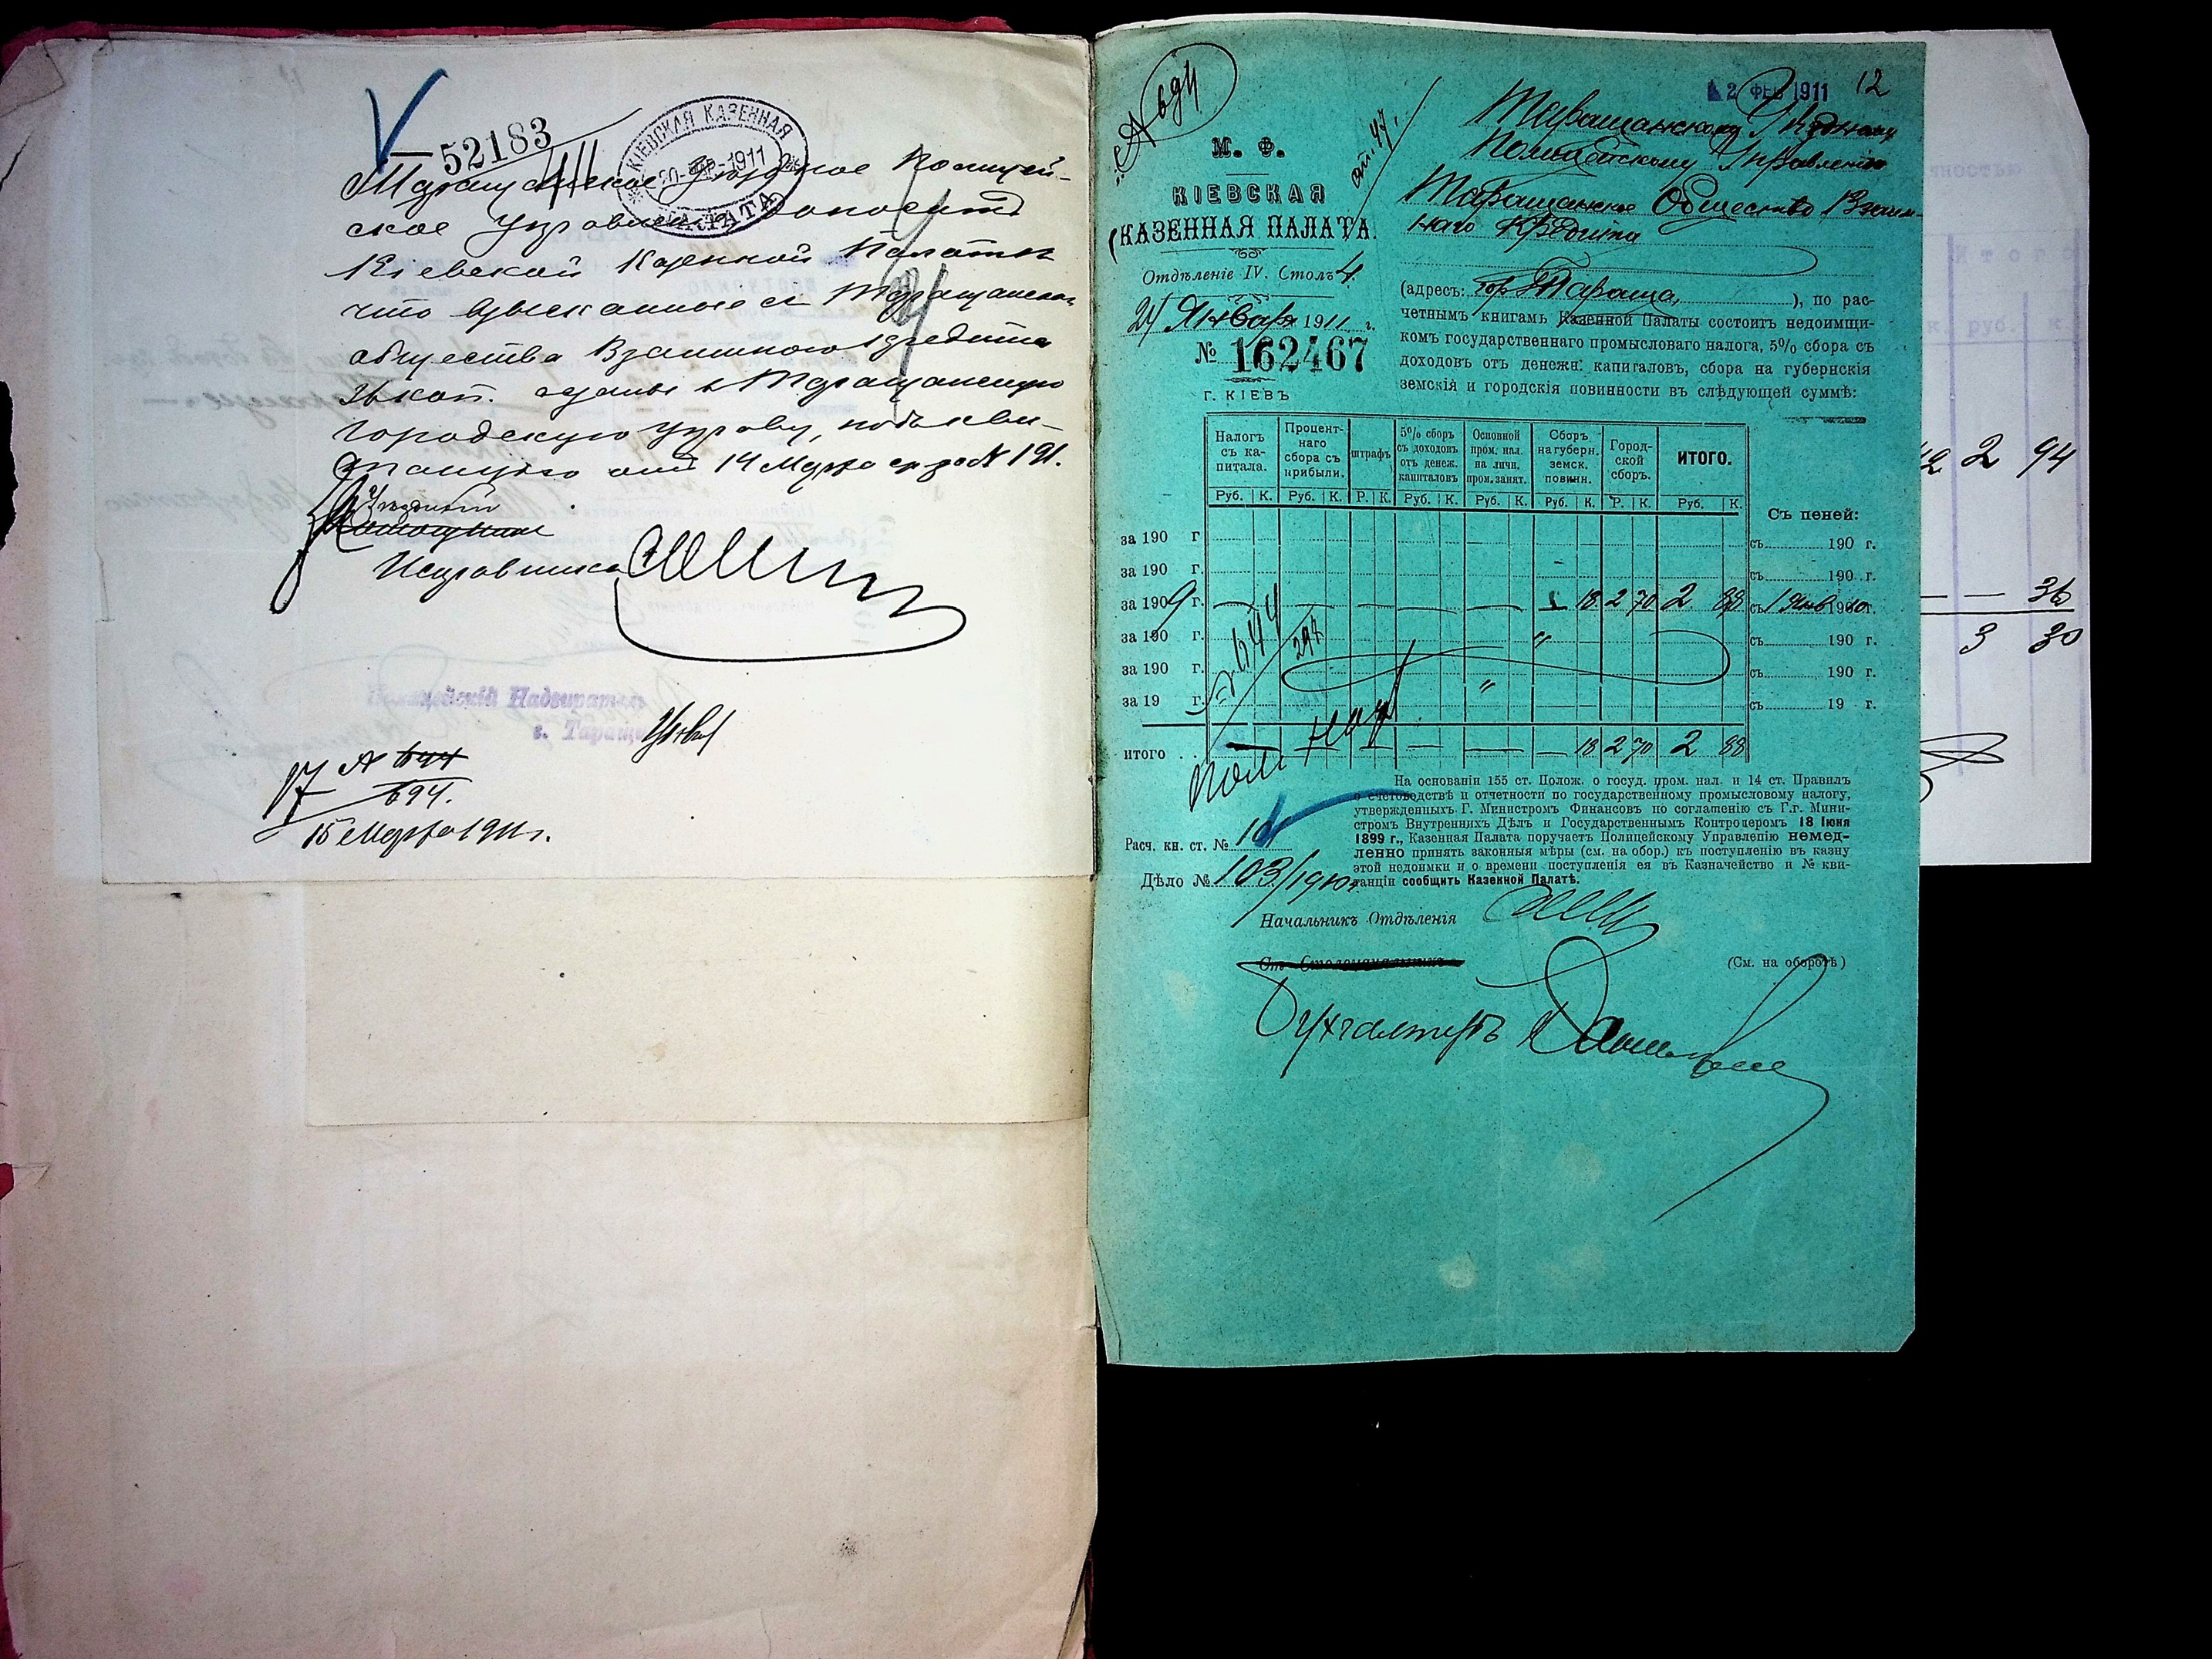 52183
КІЕВСКАЯ КАЗЕННАЯ
20-МАР-1911
ПАЛАТА
Таращанское Уѣздное Полицей-
ское Управленіе доноситъ
Кіевской Казенной Палатѣ
что взысканные съ Таращанскаго
общества Взаимнаго Кредита
36 коп. сданы въ Таращанскую
городскую управу, подъ кви-
танцію отъ 14 Марта за № 191.
Уѣздный
Исправникъ
Полицейскій Надзиратель
г. Таращи
№ 644
694.
15 Марта 1911 г.
694
2 ФЕВ 1911
12
М. Ф.
КІЕВСКАЯ
КАЗЕННАЯ ПАЛАТА.
Отдѣленіе IV. Столъ 4
24 Января 1911 г.
№ 162467
Г. КІЕВЪ
Таращанскому Уѣздному
Полицейскому Управленію
Таращанское Общество Взаим-
наго Кредита
(адресъ: гор. Тараща, ), по рас-
четнымъ книгамъ Казенной Палаты состоитъ недоимщи-
комъ государственнаго промысловаго налога, 5% сбора съ
доходовъ отъ денежн. капиталовъ, сбора на губернскія
земскія и городскія повинности въ слѣдующей суммѣ:
Налогъ съ ка-питала. Процент-наго сбора съ прибыли. штрафъ 5% сборъ съ доходовъ отъ денеж. капиталовъ Основной пром. нал. на личн. пром. занят. Сборъ на губерн. земск. повинн. Город-ской сборъ. ИТОГО.
Руб. К. Руб. К. Р. К. Руб. К. Руб. К. Руб. К. Р. К. Руб. К.
Съ пеней:
за 190 г. съ 190 г.
за 190 г. съ 190 г.
за 1909 г. — — — — — 18 2 70 2 88 съ 1 Янв 1910 г.
за 190 г. " съ 190 г.
за 190 г. съ 190 г.
за 19 г. " съ 19 г.
итого . . — — — — — — 18 2 70 2 88
Расч. кн. ст. №
Дѣло № 103/1910 г.
На основаніи 155 ст. Полож. о госуд. пром. нал. и 14 ст. Правилъ
о счетоводствѣ и отчетности по государственному промысловому налогу,
утвержденныхъ Г. Министромъ Финансовъ по соглашенію съ Г.г. Мини-
стромъ Внутреннихъ Дѣлъ и Государственнымъ Контролеромъ 18 Іюня
1899 г., Казенная Палата поручаетъ Полицейскому Управленію немед-
ленно принять законныя мѣры (см. на обор.) къ поступленію въ казну
этой недоимки и о времени поступленія ея въ Казначейство и № кви-
танціи сообщить Казенной Палатѣ.
Начальникъ Отдѣленія
Столоначальника
(См. на оборотѣ)
Бухгалтеръ
Итого
руб. к
2 94
— — 36
3 30